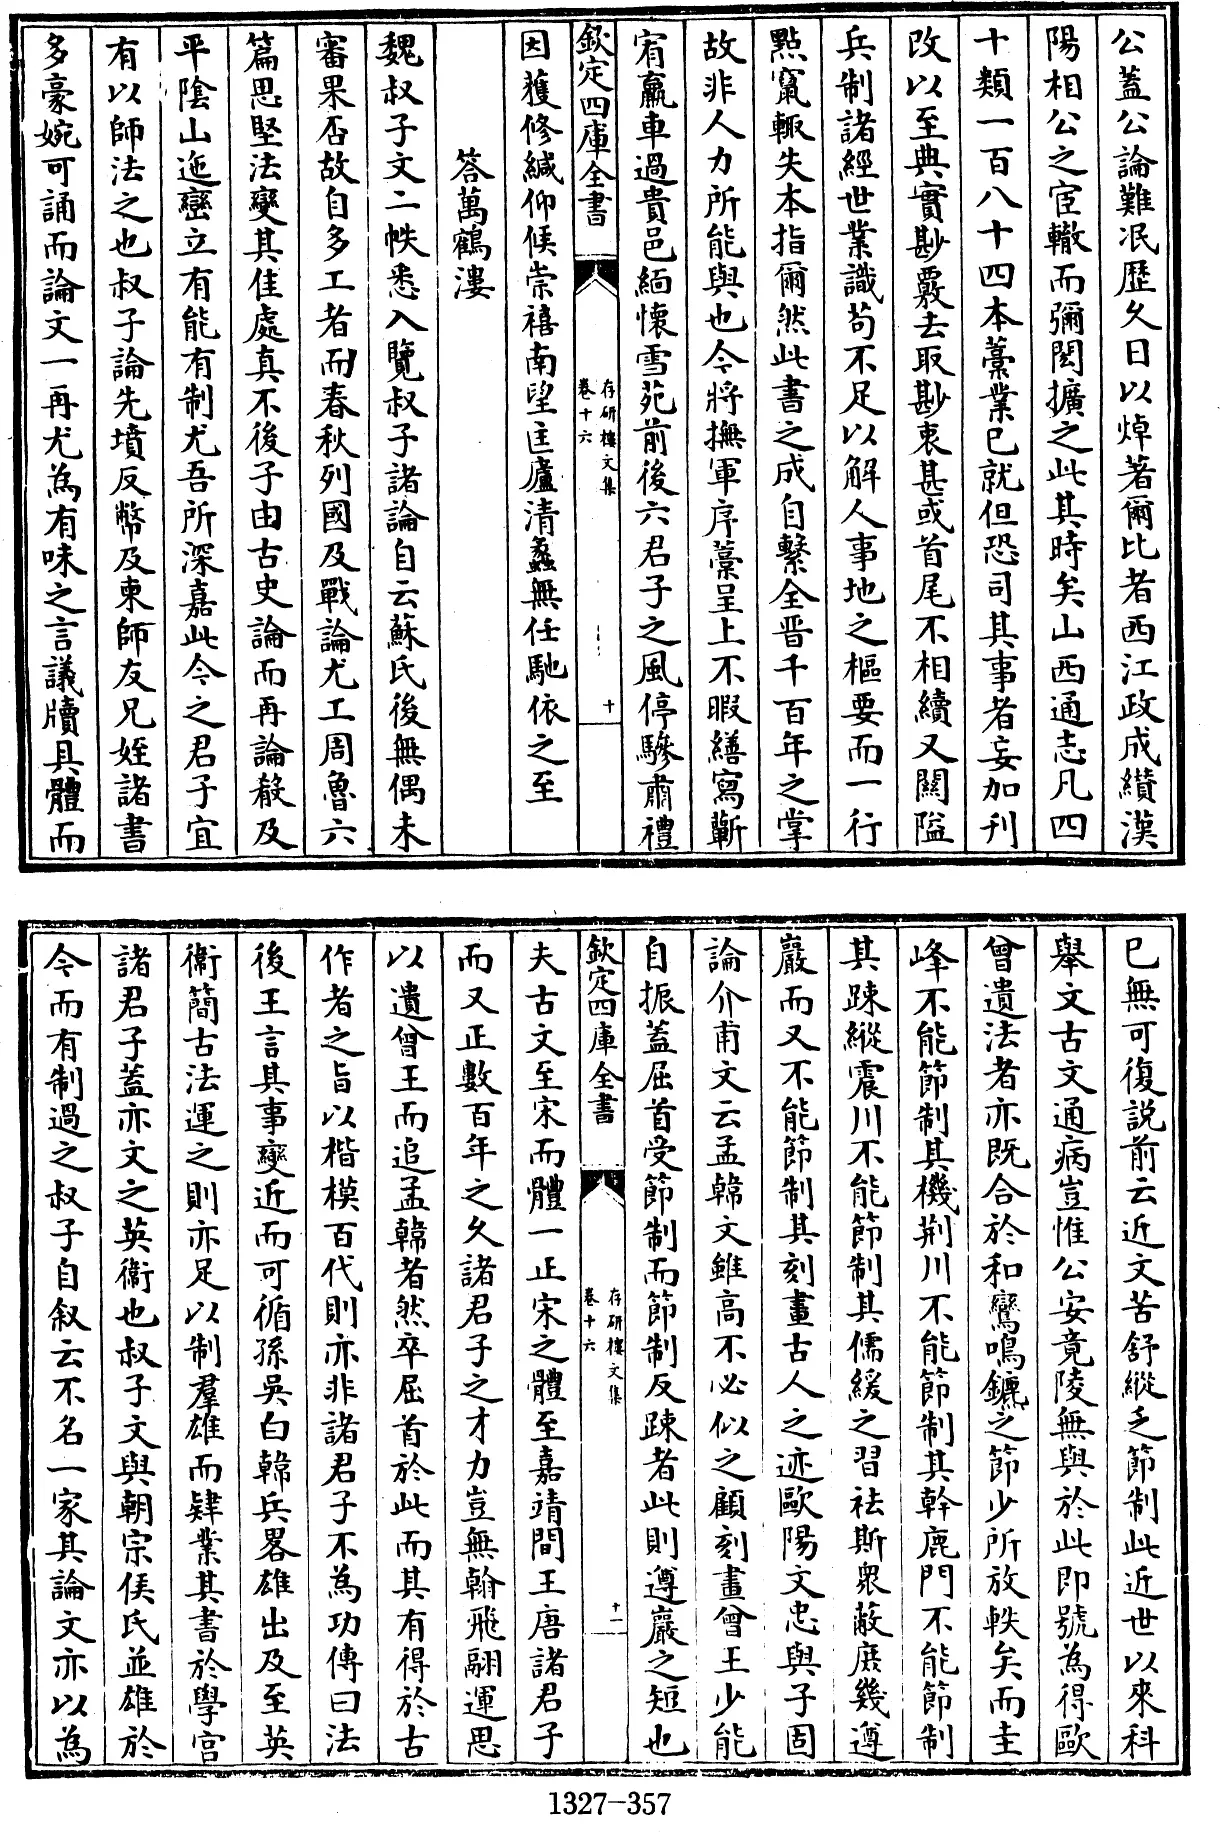 公蓋公論難泯歴久日以焯著爾比者西江政成纘漢
陽相公之宦轍而彌閎擴之此其時矣山西通志凡四
十類一百八十四本藁業已就但恐司其事者妄加刋
改以至典實尠覈去取尠衷甚或首尾不相續又闗隘
兵制諸經世業識茍不足以解人事地之樞要而一行
點竄輙失本指爾然此書之成自繫全晋千百年之掌
故非人力所能與也今將撫軍序藁呈上不暇繕寫蘄
宥羸車過貴邑緬懷雪苑前後六君子之風停驂肅禮
欽定四庫全書
存研樓文集
卷十六
十
因獲修緘仰候崇禧南望匡廬清蠡無任馳依之至
答萬鶴漊
魏叔子文二帙悉入覽叔子諸論自云蘇氏後無偶未
審果否故自多工者而春秋列國及戰論尤工周魯六
篇思堅法變其佳處真不後子由古史論而再論殽及
平陰山迤巒立有能有制尤吾所深嘉此今之君子宜
有以師法之也叔子論先墳反幣及柬師友兄姪諸書
多豪婉可誦而論文一再尤為有味之言議牘具體而
已無可復説前云近文苦舒縱乏節制此近世以來科
舉文古文通病豈惟公安竟陵無與於此即號為得歐
曾遺法者亦既合於和鸞鳴鑣之節少所放軼矣而圭
峰不能節制其機荆川不能節制其幹鹿門不能節制
其踈縱震川不能節制其儒緩之習袪斯衆蔽庻幾遵
巖而又不能節制其刻畫古人之迹歐陽文忠與子固
論介甫文云孟韓文雖高不必似之顧刻畫曾王少能
自振蓋屈首受節制而節制反踈者此則遵巖之短也
欽定四庫全書
存研樓文集
卷十六
十一
夫古文至宋而體一正宋之體至嘉靖間王唐諸君子
而又正數百年之久諸君子之才力豈無翰飛翮運思
以遺曾王而追孟韓者然卒屈首於此而其有得於古
作者之旨以楷模百代則亦非諸君子不為功傳曰法
後王言其事變近而可循孫吳白韓兵畧雄出及至英
衞簡古法運之則亦足以制羣雄而肄業其書於學宫
諸君子蓋亦文之英衞也叔子文與朝宗侯氏並雄於
今而有制過之叔子自叙云不名一家其論文亦以為
1327-357